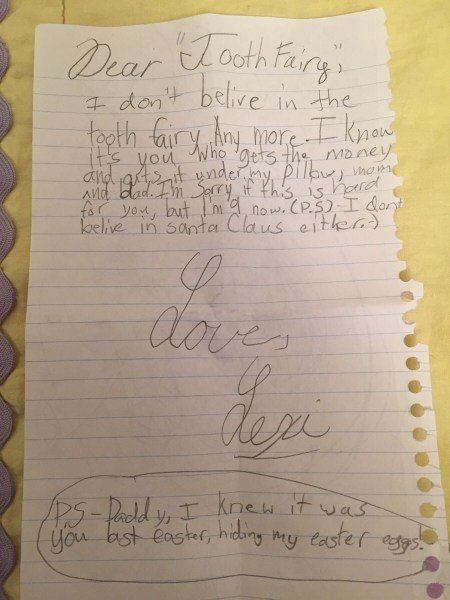 Dear "Tooth Fairy",
I don't belive in the
tooth fairy Any more. I know
it's you, who gets the money
and puts it under my pillow, mom
and dad. I'm sorry if this is hard
for you, but I'm 9 now. (P.S)-I don't
belive in santa Claus either:-)
Love,
Lexi
P.S-Daddy, I knew it was
you last easter, hiding my easter eggs.